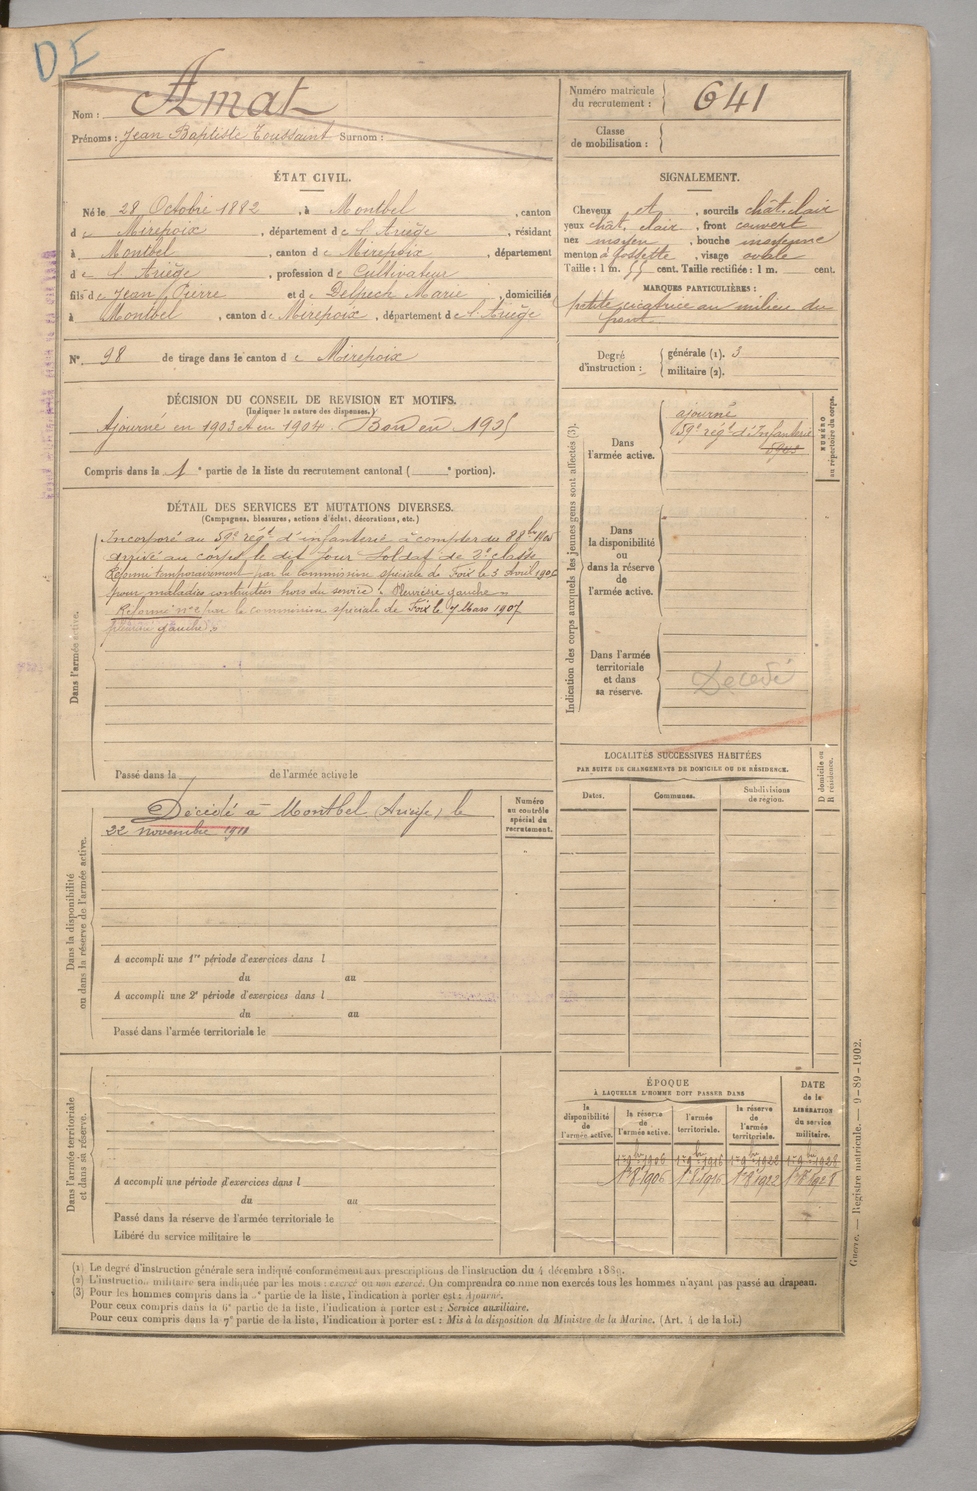 DE
Nom : Amat
Prénoms : Jean Baptiste Toussaint Surnom :
Numéro matricule du recrutement : 641
Classe de mobilisation :
ÉTAT CIVIL.
Né le 28 Octobre 1882, à Montbel, canton
de Mirepoix, département de l'Ariège, résidant
à Montbel, canton de Mirepoix, département
de l'Ariège, profession de Cultivateur
fils de Jean Pierre et de Delpech Marie, domiciliés
à Montbel, canton de Mirepoix, département de l'Ariège
N° 98 de tirage dans le canton de Mirepoix
SIGNALEMENT.
Cheveux et, sourcils chât. clair
yeux chât. clair, front couvert
nez moyen, bouche moyenne
menton à fossette, visage ovale
Taille : 1 m. 55 cent. Taille rectifiée : 1 m. cent.
MARQUES PARTICULIÈRES :
petite cicatrice au milieu du
front
Degré d'instruction : générale (1). 3
militaire (2).
DÉCISION DU CONSEIL DE REVISION ET MOTIFS.
(Indiquer la nature des dispenses.)
Ajourné en 1903 et en 1904. Bon en 1905
Compris dans la 1e partie de la liste du recrutement cantonal ( e portion).
DÉTAIL DES SERVICES ET MUTATIONS DIVERSES.
(Campagnes, blessures, actions d'éclat, décorations, etc.)
Dans l'armée active.
Incorporé au 59e régt d'infanterie à compter du 8 8bre 1905
arrivé au corps le dit jour Soldat de 2e classe
Réformé temporairement par la commission spéciale de Foix le 3 Avril 1906
pour maladies contractées hors du service. Pleurésie gauche
Réformé n° 2 par la commission spéciale de Foix le 7 Mars 1907
pleurésie gauche.
Passé dans la de l'armée active le
Indication des corps auxquels les jeunes gens sont affectés (3).
NUMÉRO au répertoire du corps.
Dans l'armée active.
ajourné
59e régt d'Infanterie
Dans la disponibilité ou dans la réserve de l'armée active.
Dans l'armée territoriale et dans sa réserve.
Décédé
LOCALITÉS SUCCESSIVES HABITÉES
PAR SUITE DE CHANGEMENTS DE DOMICILE OU DE RÉSIDENCE.
Dates.
Communes.
Subdivisions de région.
D domicile ou R résidence.
Dans la disponibilité ou dans la réserve de l'armée active.
Décédé à Montbel (Ariège) le
22 novembre
Numéro au contrôle spécial du recrutement.
A accompli une 1re période d'exercices dans l
du au
A accompli une 2e période d'exercices dans l
du au
Passé dans l'armée territoriale le
Dans l'armée territoriale et dans sa réserve.
A accompli une période d'exercices dans l
du au
Passé dans la réserve de l'armée territoriale le
Libéré du service militaire le
ÉPOQUE
À LAQUELLE L'HOMME DOIT PASSER DANS
la disponibilité de l'armée active.
la réserve de l'armée active.
l'armée territoriale.
la réserve de l'armée territoriale.
DATE de la LIBÉRATION du service militaire.
Guerre. — Registre matricule. — 9-89-1902.
(1) Le degré d'instruction générale sera indiqué conformément aux prescriptions de l'instruction du 4 décembre 1889.
(2) L'instruction militaire sera indiquée par les mots : exercé ou non exercé. On comprendra comme non exercés tous les hommes n'ayant pas passé au drapeau.
(3) Pour les hommes compris dans la e partie de la liste, l'indication à porter est : Ajourné.
Pour ceux compris dans la 6e partie de la liste, l'indication à porter est : Service auxiliaire.
Pour ceux compris dans la 7e partie de la liste, l'indication à porter est : Mis à la disposition du Ministre de la Marine. (Art. 4 de la loi.)